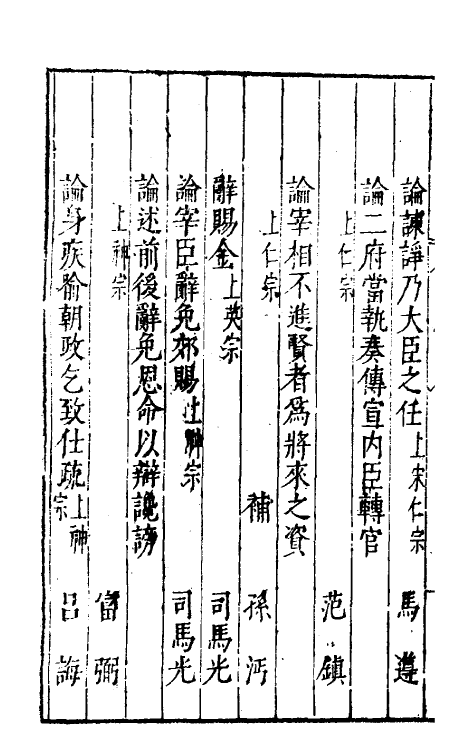 論諫諍乃大臣之任上宋仁宗　馬遵
論二府當執奏傳宣內臣轉官
上仁宗　范鎮
論宰相不進賢者為將來之資
上仁宗　補　孫沔
辭賜金上英宗　司馬光
論宰臣辭免郊賜上神宗　司馬光
論述前後辭免恩命以辯讒謗
上神宗　富弼
論身疾喻朝政乞致仕疏上神宗　呂誨